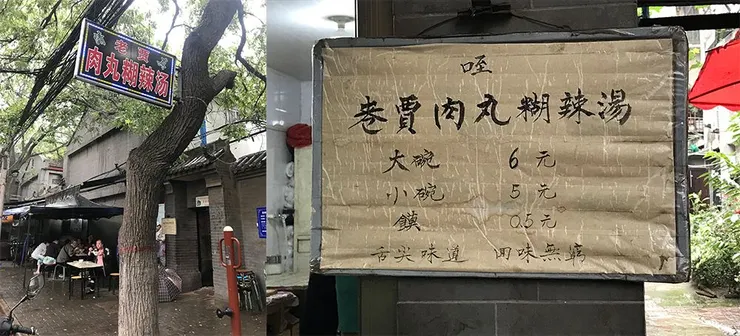 老贾
肉丸糊辣汤
咥
巷賈肉丸糊辣湯
大碗 6元
小碗 5元
馍 0.5元
舌尖味道 回味無窮